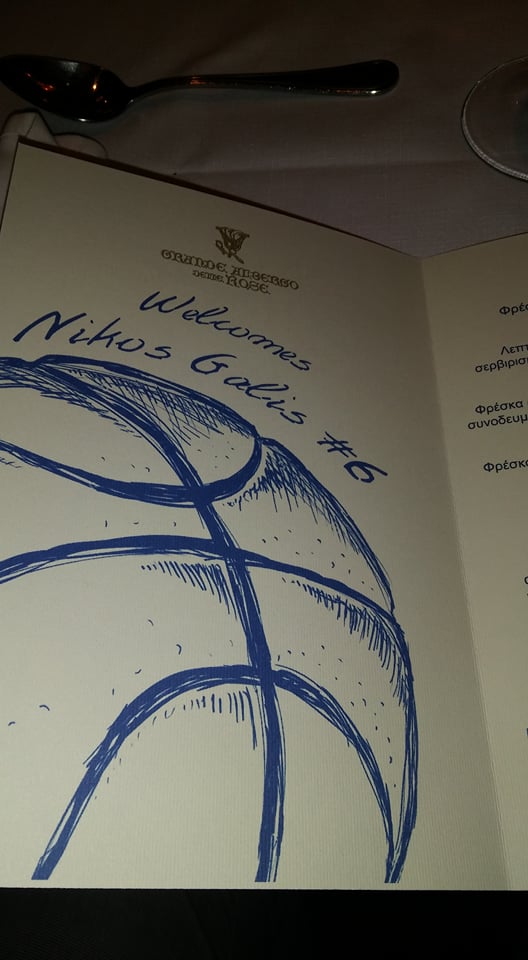 GRANDE ALBERGO
DELLE ROSE
Welcomes
Nikos Galis #6
Φρέσ
Λεπτ
σερβιρισ
Φρέσκα
συνοδευμ
Φρέσκ